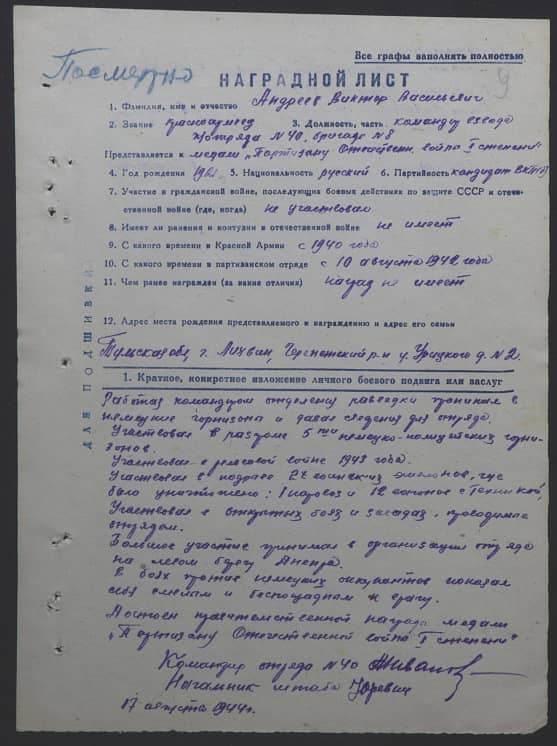 Все графы заполнять полностью
Посмертно
9
НАГРАДНОЙ ЛИСТ
1. Фамилия, имя и отчество Андреев Виктор Васильевич
2. Звание красноармеец 3. Должность, часть командир взвода
отряда N 40, бригада N 8
Представляется к медали „Партизану Отечествен. войны I степени"
4. Год рождения 5. Национальность русский 6. Партийность кандидат ВКП(б)
7. Участие в гражданской войне, последующих боевых действиях по защите СССР и отече-
ственной войне (где, когда) не участвовал
8. Имеет ли ранения и контузии в отечественной войне не имеет
9. С какого времени в Красной Армии с 1940 года
10. С какого времени в партизанском отряде с 10 августа 1942 года
11. Чем ранее награжден (за какие отличия) наград не имеет
12. Адрес места рождения представляемого к награждению и адрес его семьи
Тульская обл, г. Лихвин, р-н у. Урицкого д. N 2.
ДЛЯ ПОДШИВКИ
1. Краткое, конкретное изложение личного боевого подвига или заслуг
Работая командиром отделения разведки проникал в
немецкие горнизона и давал сведения для отряда.
Участвовал в разгроме 5ти немецко-полицейских горни-
зонов.
Участвовал в рельсовой войне 1943 года.
Участвовал в подрыве 2х воинских эшелонов, где
было уничтожено: 1 паровоз и 12 вагонов с техникой,
Участвовал в открытых боях и засадах, проводимых
отрядом.
Большое участие принимал в организации отряда
на левом берегу Днепра.
В боях против немецких оккупантов показал
себя смелым и беспощадным к врагу.
Достоен правительственной награды медали
„Партизану Отечественной войны I степени"
Командир отряда N 40 Иванов
Начальник штаба Юревич
17 августа 1944 г.